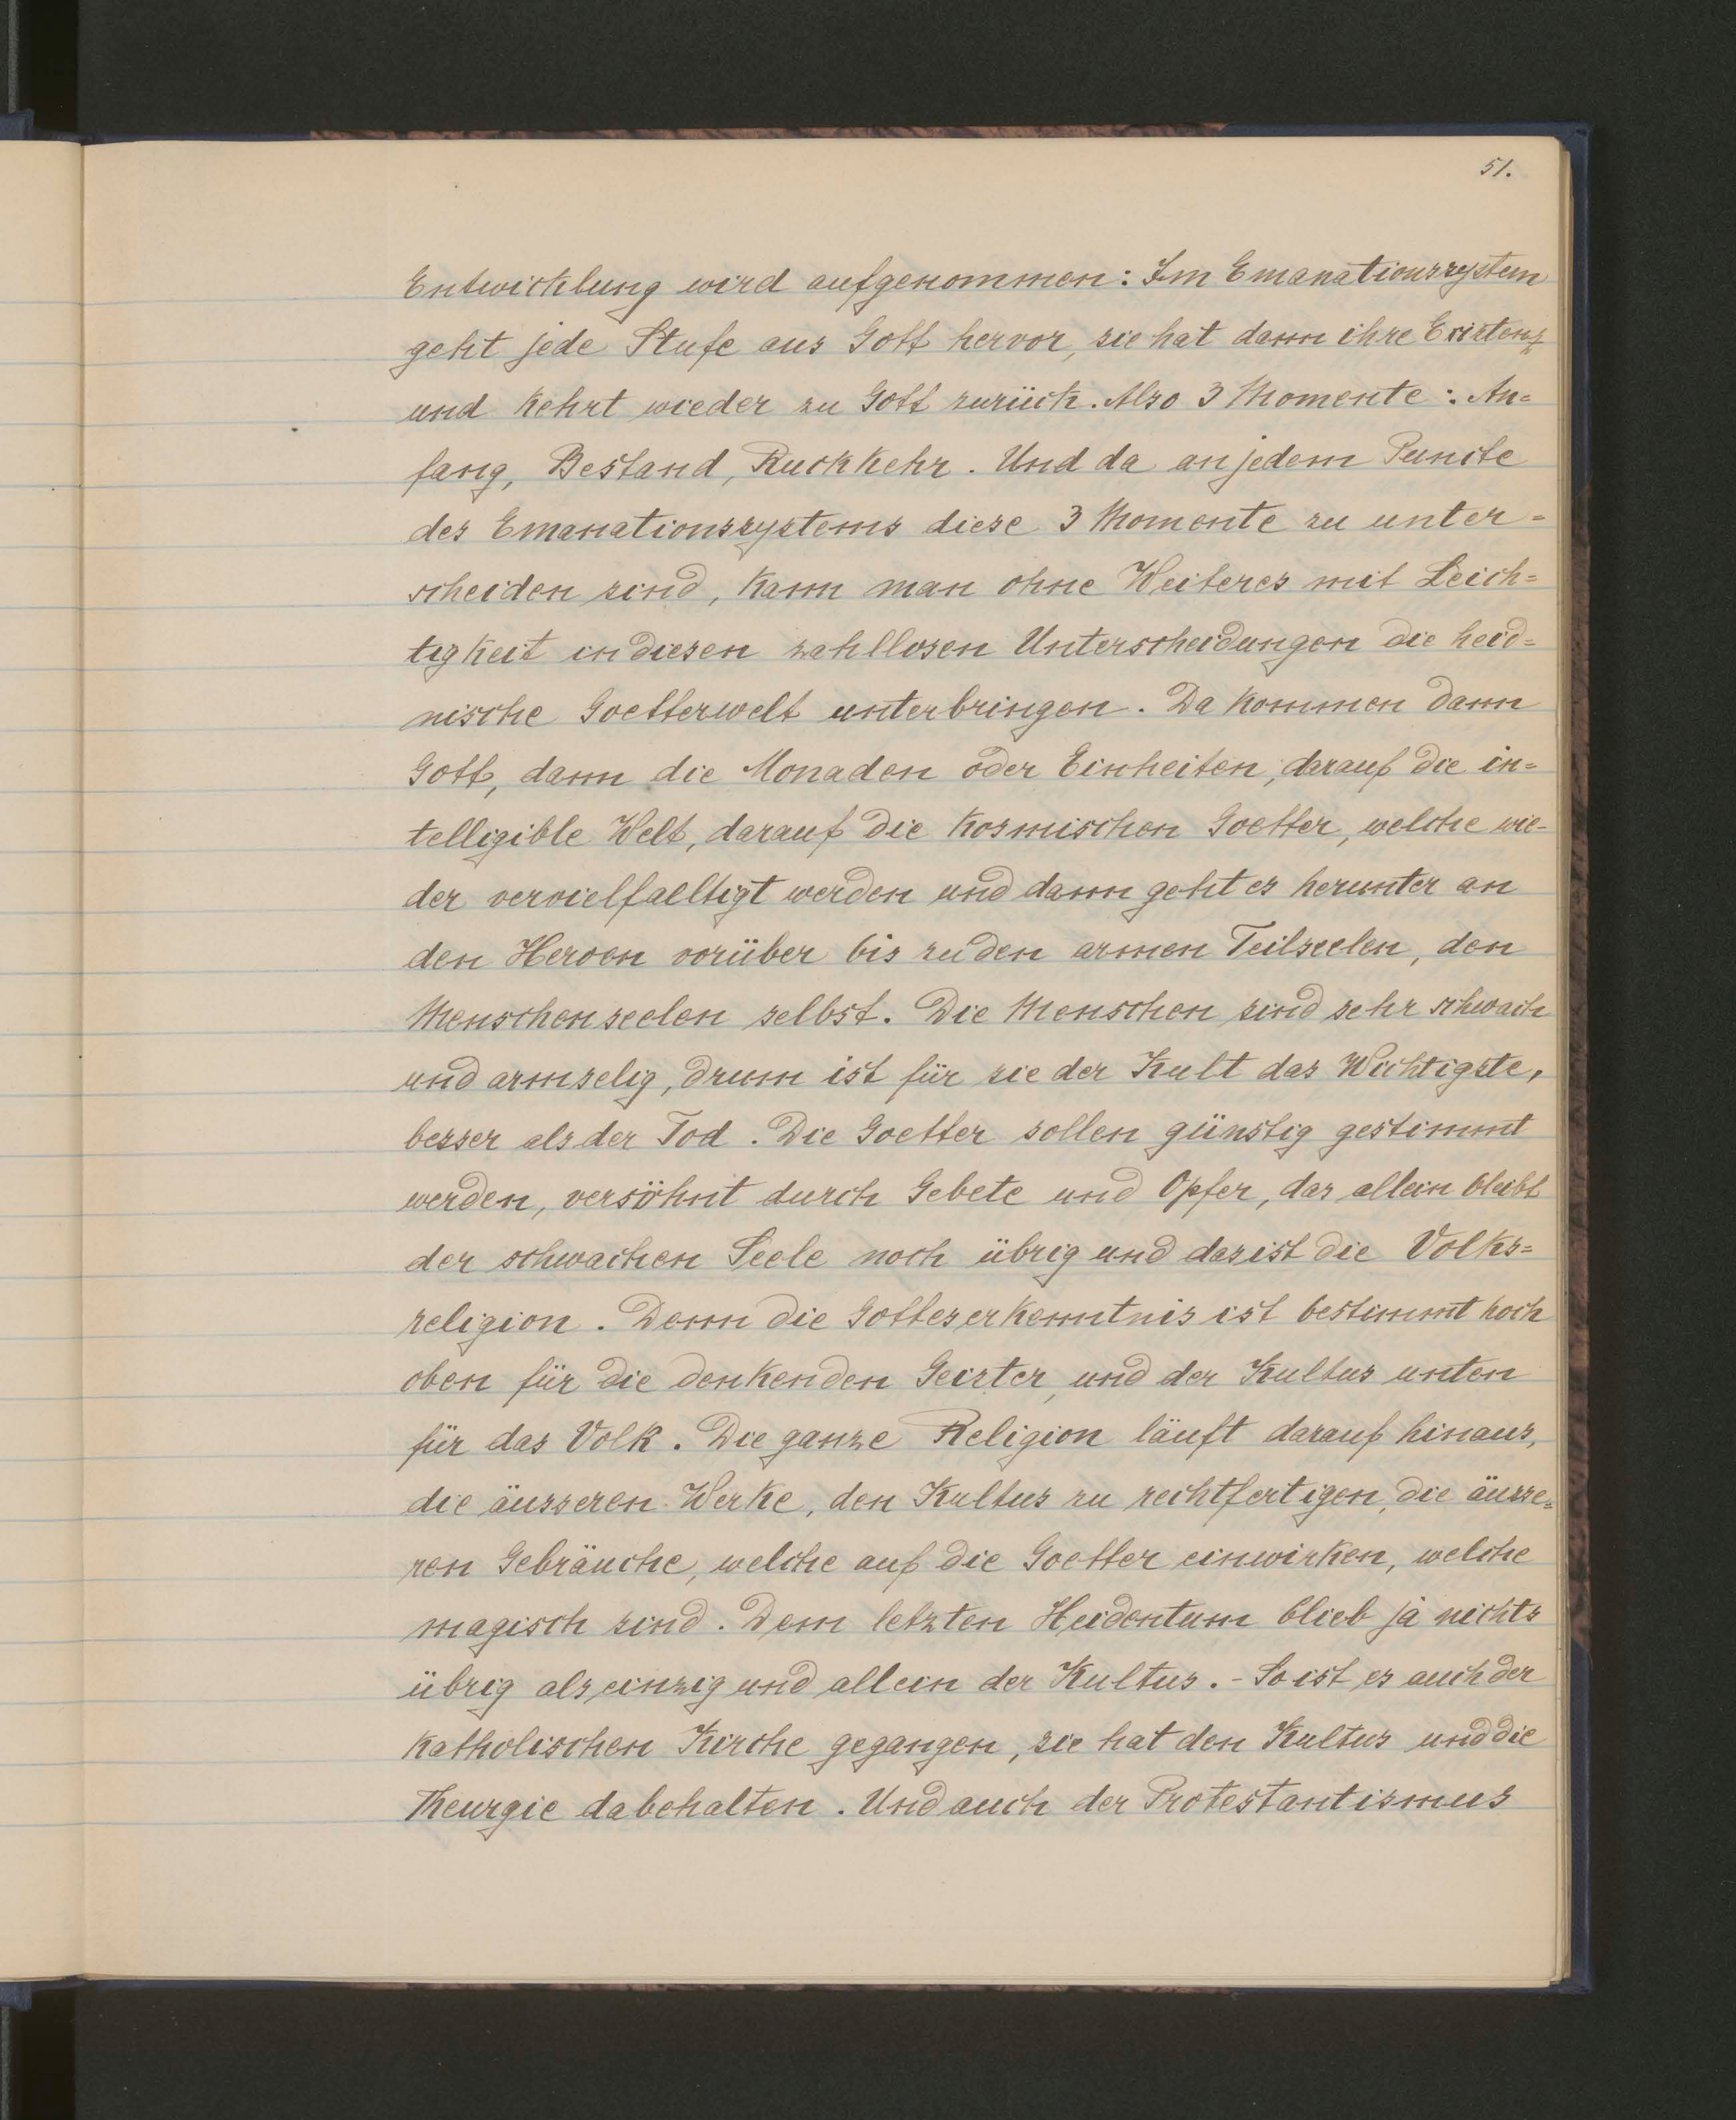 51.
Entwicklung wird aufgenommen: Im Emanationssystem
geht jede Stufe aus Gott hervor, sie hat dann ihre Existenz
und kehrt wieder zu Gott zurück. Also 3 Momente: An=
fang, Bestand, Ruckkehr. Und da an jedem Puncte
des Emanationssystems diese 3 Momente zu unter=
scheiden sind, kann man ohne Weiteres mit Leich=
tigkeit in diesen zahllosen Unterscheidungen die heid=
nische Goetterwelt unterbringen. Da kommen dann
Gott, dann die Monaden oder Einheiten, darauf die in=
telligible Welt, darauf die kosmischen Goetter, welche wie-
der vervielfaeltigt werden und dann geht es herunter an
den Heroen vorüber bis zu den armen Teilseelen, den
Menschenseelen selbst. Die Menschen sind sehr schwach
und armselig, drum ist für sie der Kult das Wichtigste,
besser als der Tod. Die Goetter sollen günstig gestimmt
werden, versöhnt durch Gebete und Opfer, das allein bleibt
der schwachen Seele noch übrig und das ist die Volks=
religion. Denn die Gotteserkenntnis ist bestimmt hoch
oben für die denkenden Geister, und der Kultus unten
für das Volk. Die ganze Religion läuft darauf hinaus,
die äusseren Werke, den Kultus zu rechtfertigen, die äusse=
ren Gebräuche, welche auf die Goetter einwirken, welche
magisch sind. Dem letzten Heidentum blieb ja nichts
übrig als einzig und allein der Kultus. - So ist es auch der
katholischen Kirche gegangen, sie hat den Kultus und die
Theurgie dabehalten. Und auch der Protestantismus